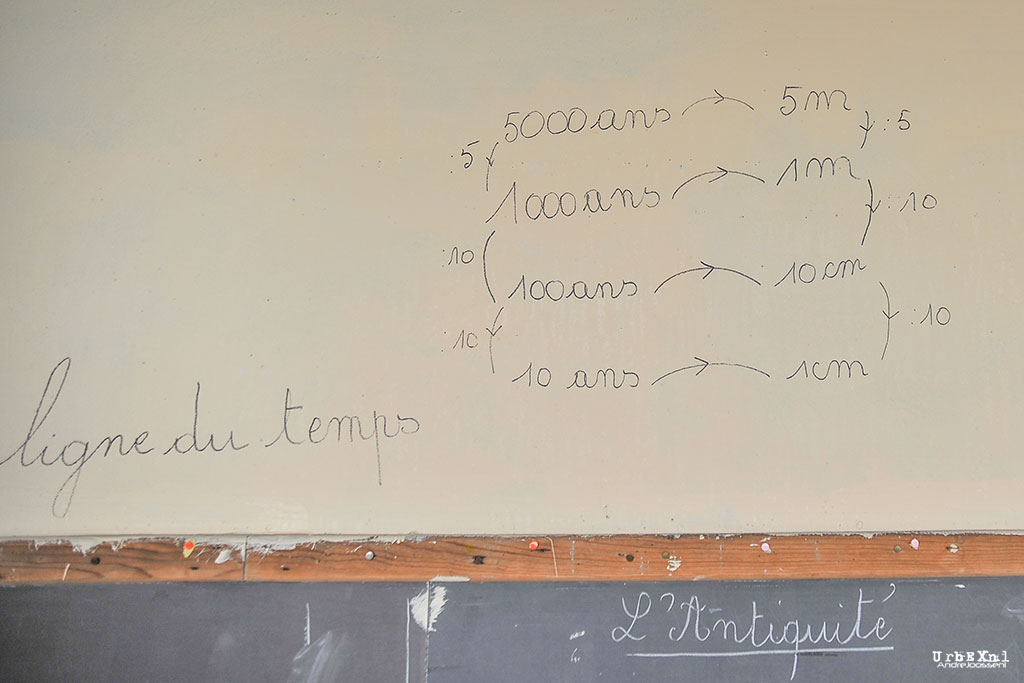 5000 ans → 5m
:5 :5
1000 ans → 1m
:10 :10
100 ans → 10 cm
:10 :10
10 ans → 1cm
ligne du temps
L'Antiquité
UrbEXnl
AndreJoosseni